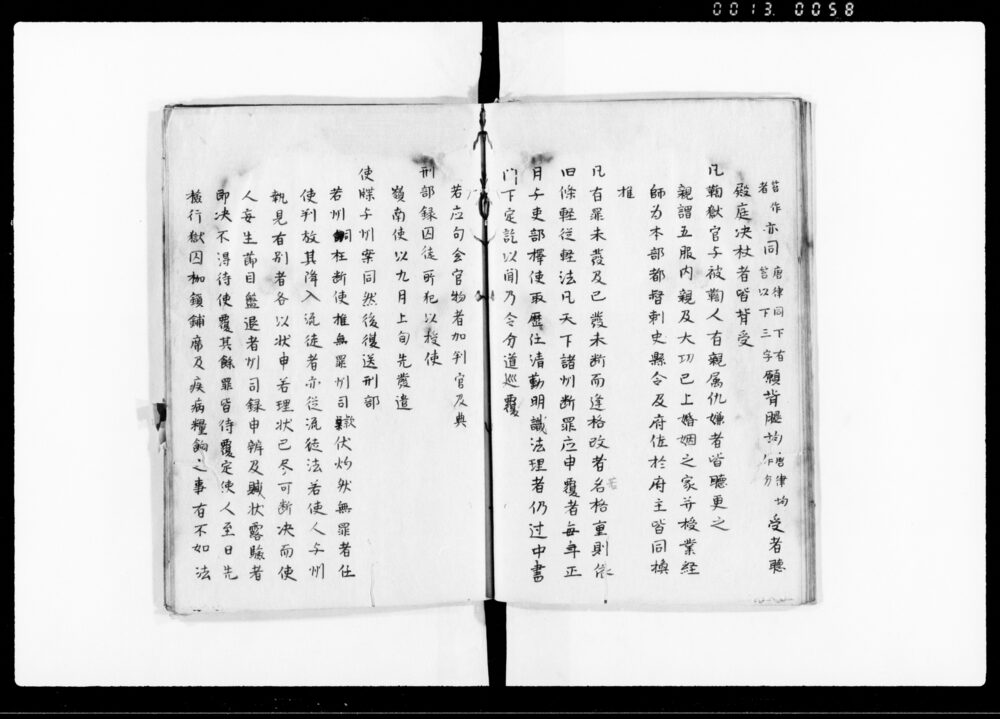 0013 0058
笞作者 亦同 唐律同下有笞以下三字 願背腿均 唐律均作分 受者聽
殿庭决杖者皆背受
凡鞫獄官与被鞫人有親属仇嫌者皆聽更之
親謂五服内親及大功已上婚姻之家并授業経
師为本部都督刺史縣令及府佐於府主皆同換
推
凡有罪未發及已發未断而逢格改者若格重則依
旧條軽従軽法凡天下諸州断罪应申覆者每年正
月与吏部擇使取歷仕清勤明識法理者仍过中書
门下定訖以闻乃令分道巡覆
若应句会官物者加判官及典
刑部録囚徒所犯以授使
嶺南使以九月上旬先發遣
使牒与州案同然後復送刑部
若州司枉断使推無罪州司欵伏灼然無罪者任
使判放其降入流徒者亦従流徒法若使人与州
執見有别者各以状申若理状已尽可断决而使
人每生節目盤退者州司録申辨及贓状露驗者
即决不得待使覆其餘罪皆待覆定使人至日先
檢行獄囚枷鎖鋪席及疾病糧餉之事有不如法